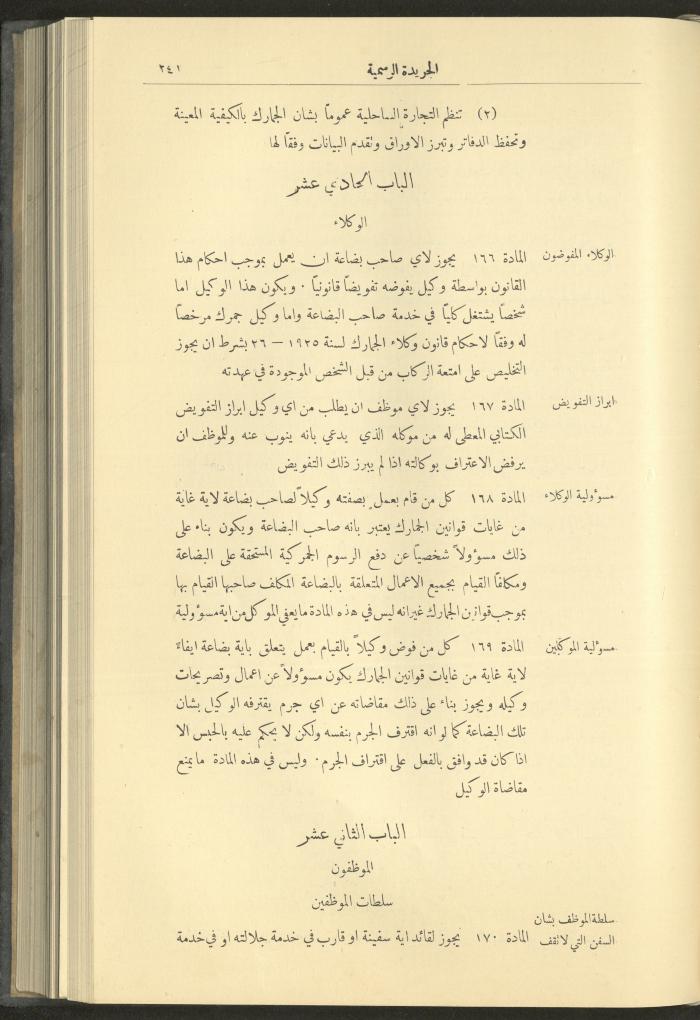 الجريدة الرسمية ٢٤١
(٢) تنظم التجارة الساحلية عموماً بشان الجمارك بالكيفية المعينة
وتحفظ الدفاتر وتبرز الاوراق وتقدم البيانات وفقاً لها
الباب الحادي عشر
الوكلاء
الوكلاء المفوضون المادة ١٦٦ يجوز لاي صاحب بضاعة ان يعمل بموجب احكام هذا
القانون بواسطة وكيل يفوضه تفويضاً قانونياً . ويكون هذا الوكيل اما
شخصاً يشتغل كلياً في خدمة صاحب البضاعة واما وكيل جمرك مرخصاً
له وفقاً لاحكام قانون وكلاء الجمارك لسنة ١٩٢٥ — ٢٦ بشرط ان يجوز
التخليص على امتعة الركاب من قبل الشخص الموجودة في عهدته
ابراز التفويض المادة ١٦٧ يجوز لاي موظف ان يطلب من اي وكيل ابراز التفويض
الكتابي المعطى له من موكله الذي يدعي بانه ينوب عنه وللموظف ان
يرفض الاعتراف بوكالته اذا لم يبرز ذلك التفويض
مسؤولية الوكلاء المادة ١٦٨ كل من قام بعمل بصفته وكيلاً لصاحب بضاعة لاية غاية
من غايات قوانين الجمارك يعتبر بانه صاحب البضاعة ويكون بناء على
ذلك مسؤولاً شخصياً عن دفع الرسوم الجمركية المستحقة على البضاعة
ومكلفاً القيام بجميع الاعمال المتعلقة بالبضاعة المكلف صاحبها القيام بها
بموجب قوانين الجمارك غير انه ليس في هذه المادة ما يعفي الموكل من اية مسؤولية
مسؤلية الموكلين المادة ١٦٩ كل من فوض وكيلاً بالقيام بعمل يتعلق باية بضاعة ايفاءً
لاية غاية من غايات قوانين الجمارك يكون مسؤولاً عن اعمال وتصريحات
وكيله ويجوز بناء على ذلك مقاضاته عن اي جرم يقترفه الوكيل بشان
تلك البضاعة كما لو انه اقترف الجرم بنفسه ولكن لا يحكم عليه بالحبس الا
اذا كان قد وافق بالفعل على اقتراف الجرم . وليس في هذه المادة ما يمنع
مقاضاة الوكيل
الباب الثاني عشر
الموظفون
سلطات الموظفين
سلطة الموظف بشان
السفن التي لا تقف المادة ١٧٠ يجوز لقائد اية سفينة او قارب في خدمة جلالته او في خدمة